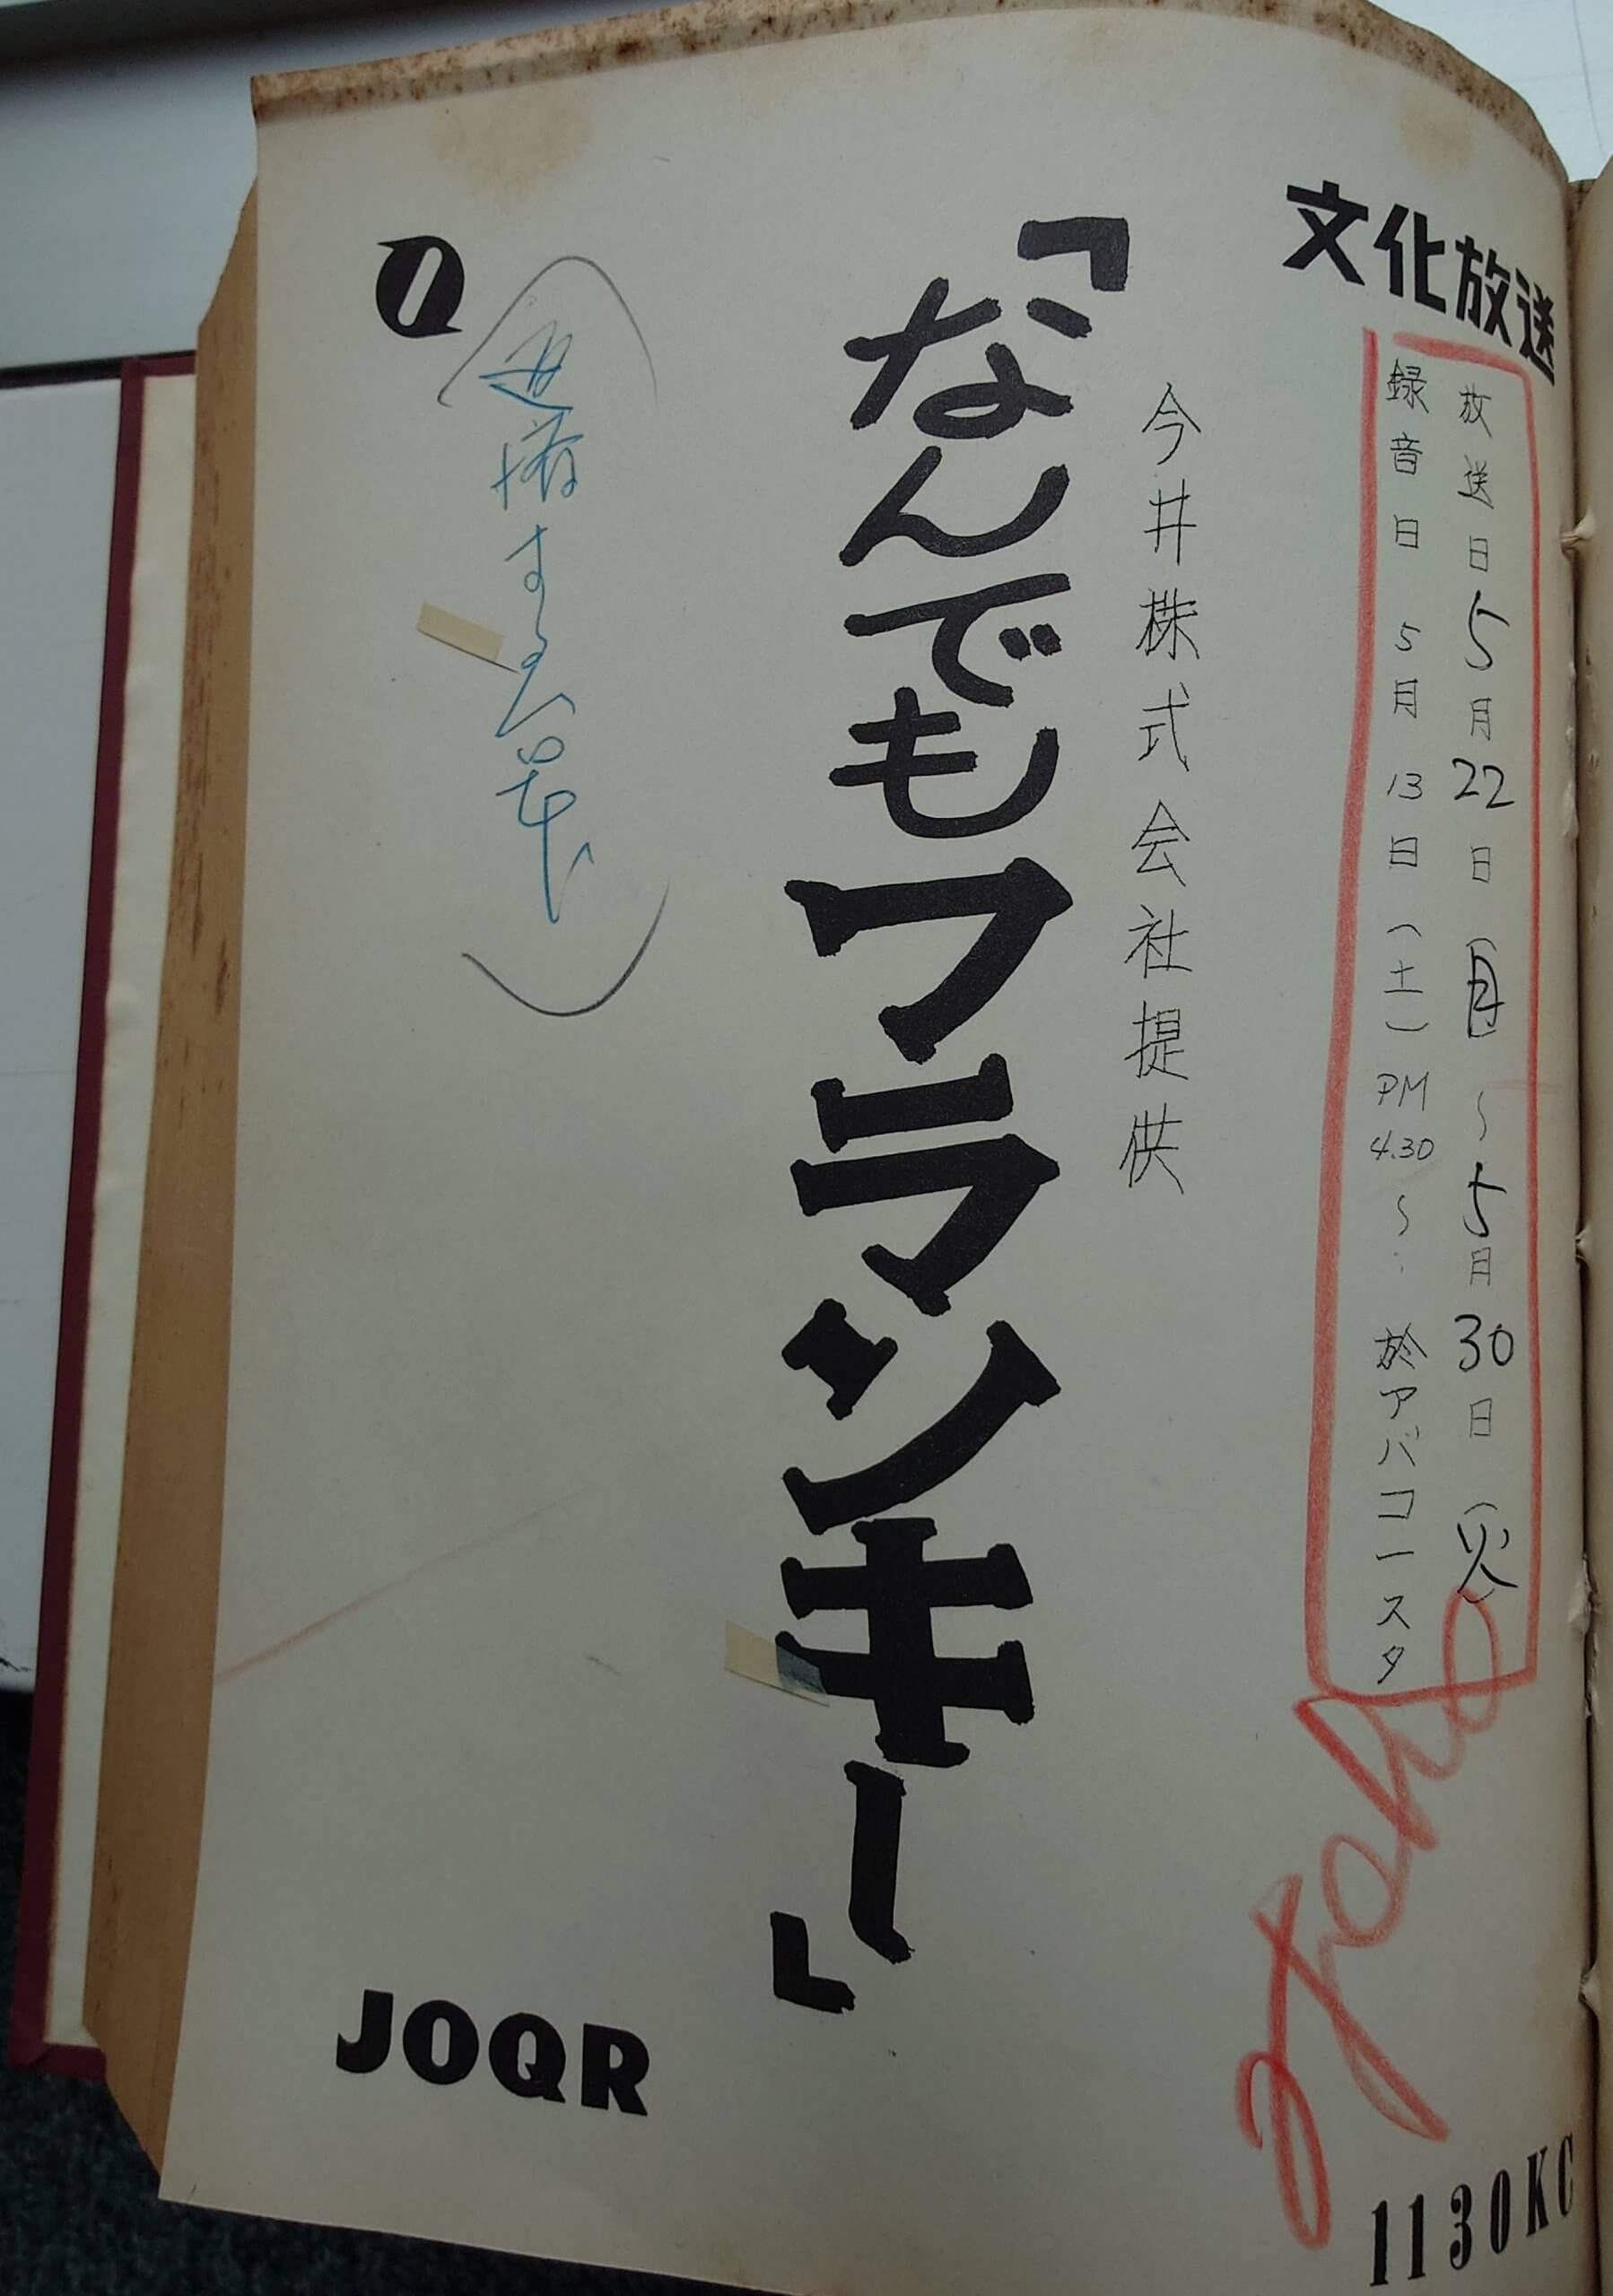 文化放送
放送日 5月22日(月)~5月30日(火)
録音日 5月13日(土)PM4.30~ 於アバコースタ
今井株式会社提供
「なんでもフランキー」
JOQR
1130KC